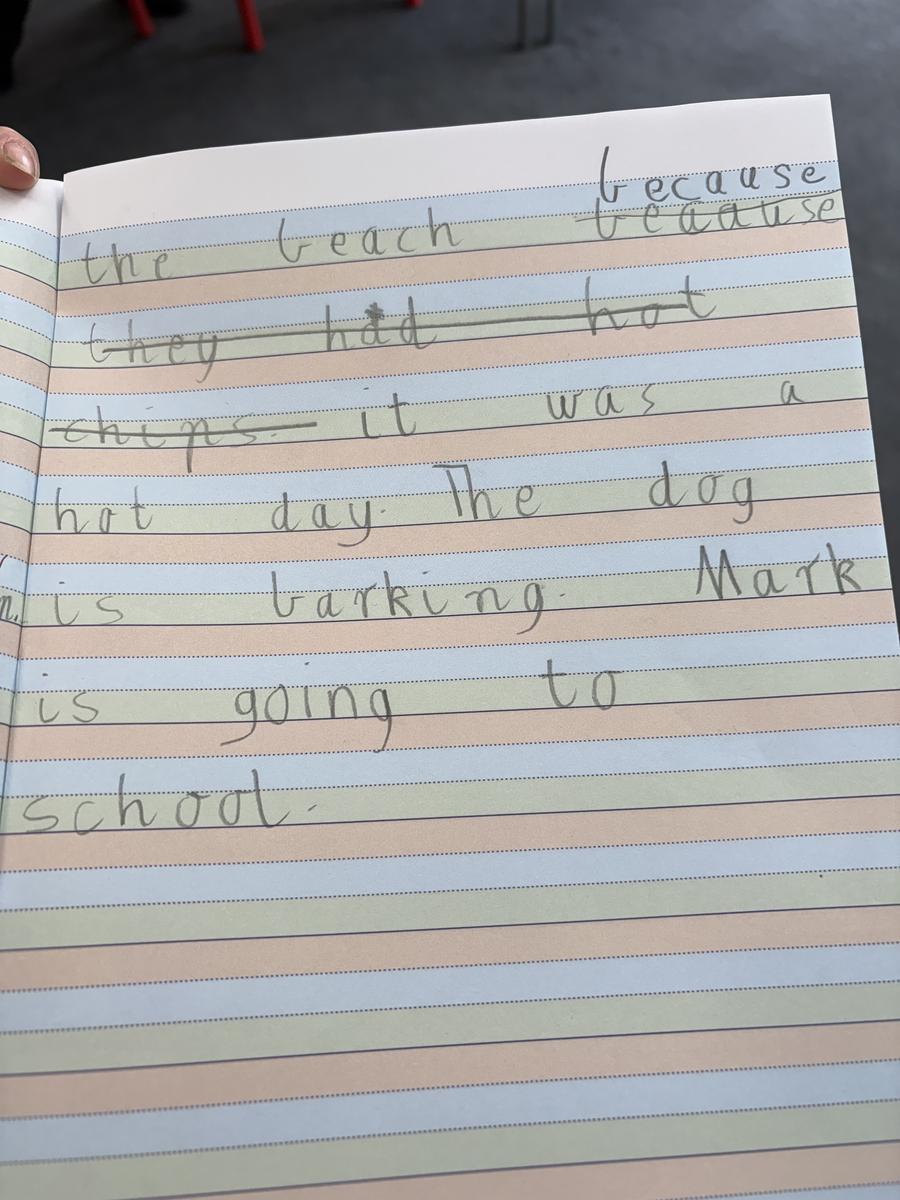 because
the beach beaause
they had hot
chips. it was a
hot day. The dog
n. is barking. Mark
is going to
school.